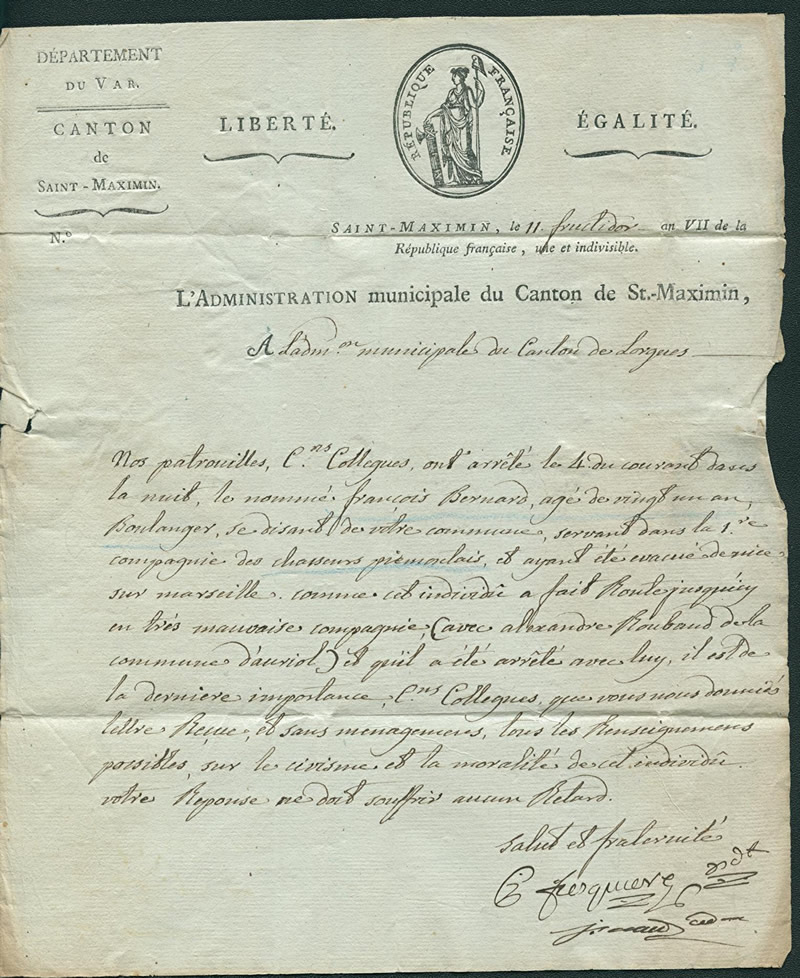 DÉPARTEMENT
DU VAR.
CANTON
de
SAINT-MAXIMIN.
N.°
LIBERTÉ.
RÉPUBLIQUE FRANÇAISE
ÉGALITÉ.
SAINT-MAXIMIN, le 11 fructidor an VII de la
République française, une et indivisible.
L'ADMINISTRATION municipale du Canton de St.-Maximin,
A L'adm.on municipale du Canton de Lorgues
Nos patrouilles, C.ns Collegues, ont arrêté le 4 du courant dans
la nuit, le nommé françois Bernard, agé de vingt un an,
Boulanger, se disant de vôtre commune, servant dans la 1.re
compagnie des chasseurs piemontais, et ayant été evacué de nice
sur marseille. comme cet individû a fait Route jusqu'icy
en trés mauvaise compagnie, (avec alexandre Roubaud de la
commune d'auriol) et qu'il a été arrêté avec luy, il est de
la derniere importance, C.ns Collegues, que vous nous donniés
lettre Reçue, et sans menagemens, tous les Renseignemens
possibles, sur le civisme et la moralité de cet individû.
votre Reponse ne doit souffrir aucun Retard.
Salut et fraternité